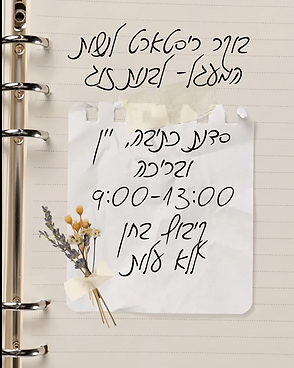 בוקר ריסטארט לנשות
המעגל- לבנות זוג
סדנת כתיבה, יין
ובריכה
9:00-13:00
קיבוץ בחן
ללא עלות